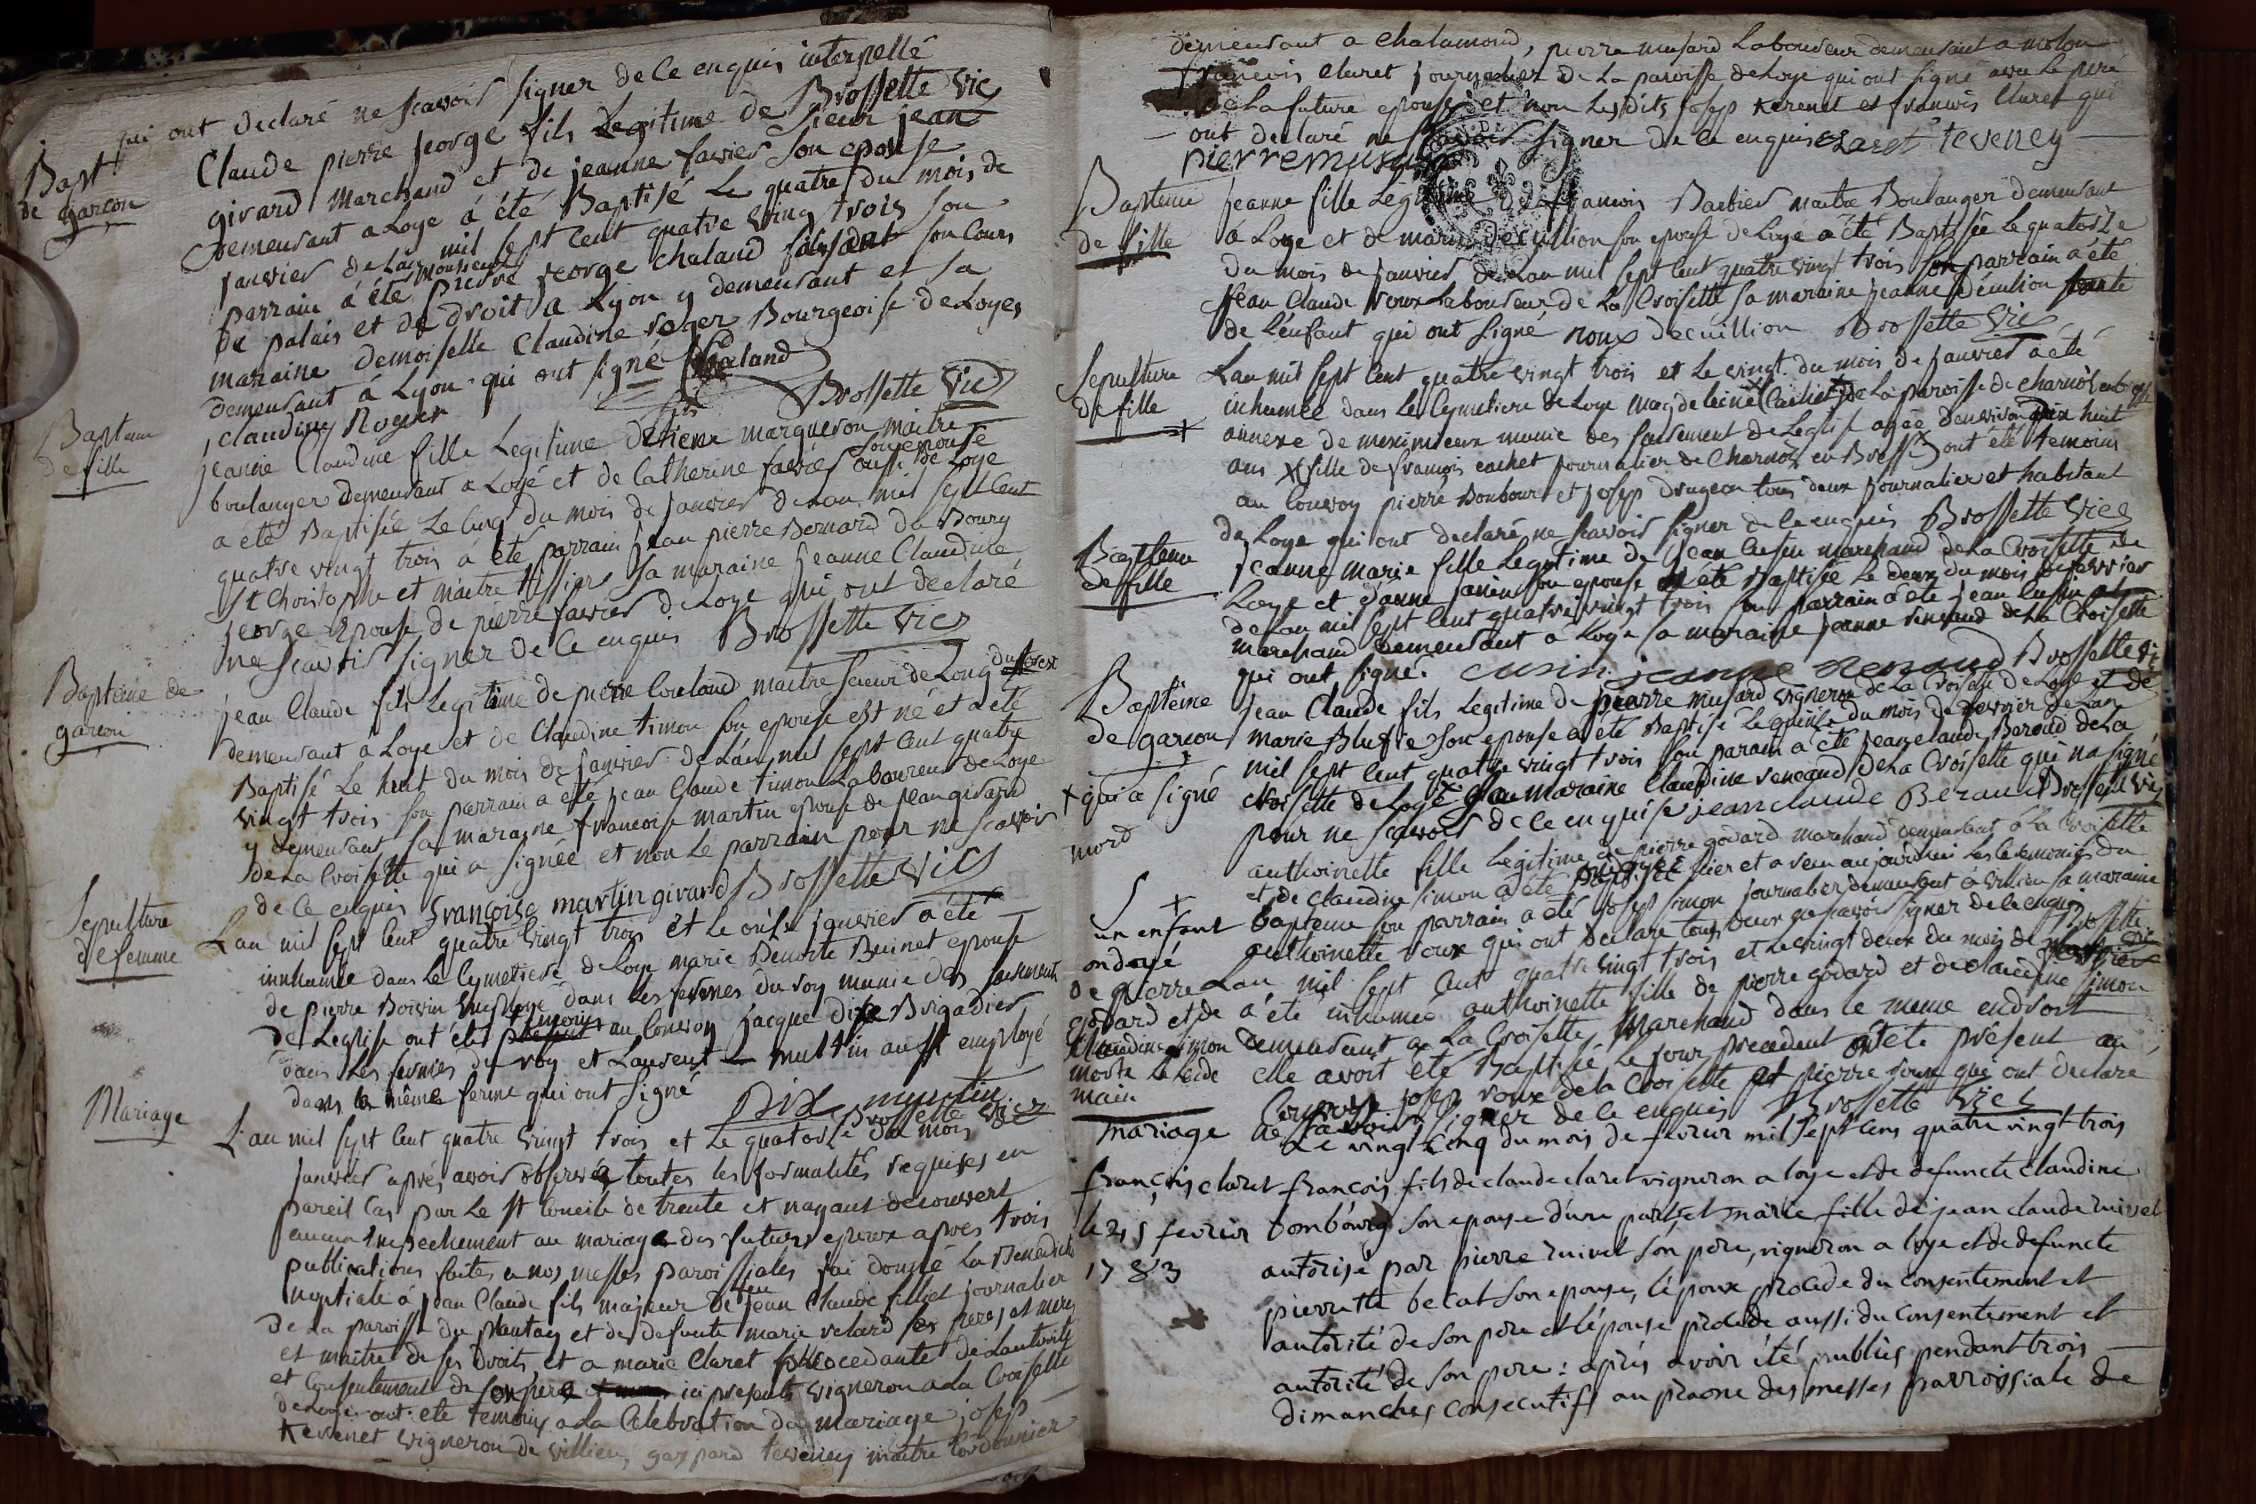 qui ont declaré ne scavoir signer de ce enquis interpellé
Brossette vic
Bapt
de garçon
Claude pierre george fils Legitime de Sieur jean
girard Marchand et de jeanne favier son epouse
demeurant a Loye á été Baptisé Le quatre du mois de
janvier de Lan mil sept cent quatre vingt trois son
parrain á été Monsieur pierre george chaland faisant son cours
de palais et de droit a Lyon y demeurant et sa
maraine demoiselle Claudine roger Bourgeoise de Loyes
demeurant à Lyon qui ont signé Chaland
claudine Royer Brossette vic
Bapteme
de fille
jeanne Claudine fille Legitime de pierre margueron maitre
boulanger demeurant a Loye et de Catherine favier son epouse aussi de Loye
a été Baptisée Le cinq du mois de janvier de Lan mil sept cent
quatre vingt trois á été parrain jean pierre Bernard du Bourg
St Christophe et maitre tissier sa maraine jeanne Claudine
george epouse de pierre favier de Loye qui ont declaré
ne scavoir signer de ce enquis Brossette vic
Bapteme de
garçon
jean Claude fils Legitime de pierre Couland maitre scieur de Long
demeurant à Loye et de Claudine timon son epouse est né et a été
Baptisé Le huit du mois de janvier de Lan mil sept cent quatre
vingt trois son parrain a été jean Claude timon Laboureur de Loye
y demeurant sa maraine francoise martin epouse de jean girard
de La Croisette qui a signée et non Le parrain pour ne scavoir
de ce enquis françoise martin girard Brossette vic
Sepulture
de femme
Lan mil sept cent quatre vingt trois et le onze janvier a été
innhumée dans Le Cymetiere de Loye marie Benoite Buinet epouse
de pierre Boivin employé dans Les fermes du roy munie des sacrement
de Leglise ont été temoins au convoy jacque dixe Brigadier
dans Les fermes du roy et Laurent multin aussi employé
dans la même ferme qui ont signé Dix multin
Brossette vic
Mariage
L'an mil sept cent quatre vingt trois et Le quatorze du mois de
janvier aprés avoir observé toutes les formalités requises en
pareil cas par Le St Concile de trente et nayant decouvert
aucun empechement au mariage des futurs epoux apres trois
publications faites a nos messes paroissiales jai donné La Benediction
nuptiale á jean Claude fils majeur de feu jean Claude filliet journalier
de La paroisse du plantay et de defunte marie velard ses peres et meres
et maitre de ses droits et a marie Claret procedante de Lautorité
et consentement de son pere ici present vigneron a La Croisette
de Loye ont été temoins a La Celebration du mariage josep
kerenet vigneron de villieu, gaspard teveney maitre Cordonnier
demeurant a Chalamond, pierre musard Laboureur demeurant a molon
francois Claret journalier de La paroisse de Loye qui ont signé avec Le pere
de La future epouse et non Lesdits josep kerenet et francois Claret qui
ont declaré ne scavoir signer de ce enquis Claret teveney
pierre musard
Bapteme
de fille
jeanne fille Legitime de francois Barbier maitre Boulanger demeurant
a Loye et de marie decullion son epouse de Loye a été Baptisée Le quatorze
du mois de janvier de Lan mil sept cent quatre vingt trois son parrain a été
jean Claude roux Laboureur de La Croisette sa maraine jeanne decullion tante
de Lenfant qui ont signé roux decuillion Brossette vic
Sepulture
de fille
Lan mil sept cent quatre vingt trois et le vingt du mois de janvier a été
inhumée dans Le Cymetiere de Loye magdeleine Cachet de La paroisse de charnoz en bresse
annexe de meximieux munie des sacrement de Leglise agée denviron dix huit
ans fille de françois cachet journalier de Charnoz en Bresse ont été temoins
au Convoy pierre Bonbour et josep drugeon tous deux journalier et habitant
de Loye qui ont declaré ne scavoir signer de ce enquis Brossette vic
Bapteme
de fille
jeanne marie fille Legitime de jean Cusin marchand de La Croisette de
Loye et danne janin son epouse a été Baptisée Le deux du mois de fevrier
de Lan mil sept cent quatre vingt trois son parrain a été jean Cusin
marchand demeurant a Loye sa maraine jeanne renaud de La Croisette
qui ont signé. cusin jeanne Renaud Brossette vi
Bapteme
de garcon
jean Claude fils Legitime de pierre musard vigneron de La Croisette de Loye et de
marie Blusse son epouse a été Baptisé Le quinze du mois de fevrier de Lan
mil sept cent quatre vingt trois son parain a été jean claude Beraud de La
croisette de Loye sa maraine Claudine renaud de La Croisette qui na signé
pour ne scavoir de ce enquise jean claude Beraud Brossette vic
+ qui a signé
mord
anthoinette fille Legitime de pierre godard marchand demeurant a La Croisette
et de Claudine simon a été ondoyée hier et a receu aujourdhui Les Ceremonies du
Bapteme son parrain a été josep simon journalier demeurant à villieu sa maraine
anthoinette roux qui ont declaré tous deux ne scavoir signer de ce enquis
Brossette vic
un enfant
ondoyé
de pierre
godard et de
Claudine simon
morte Le Lende
main
Lan mil sept cent quatre vingt trois et Le vingt deux du mois de
a été inhumée anthoinette fille de pierre godard et de claudine simon
demeurant a La Croisette, Marchand dans le meme endroit
elle avoit été Baptisé Le jour precedent ont été présent au
Convoy josep roux de la Croisette et pierre roux qui ont declaré
ne scavoir signer de ce enquis Brossette vic
mariage
françois claret
le 25 fevrier
1783
Le vingt cinq du mois de fevrier mil sept cens quatre vingt trois
françois fils de claude claret vigneron a loye et de defuncte claudine
bombourg son epouse d'une part, et marie fille de jean claude ruivet
autorisé par pierre ruivet son pere, vigneron a loye et de defuncte
pierrette becat son epouse, lépoux procede du consentement et
autorité de son pere et lépouse procede aussi du consentement et
autorité de son pere : aprés avoir été publiés pendant trois
dimanches consecutifs au prosne des messes parroissiale de